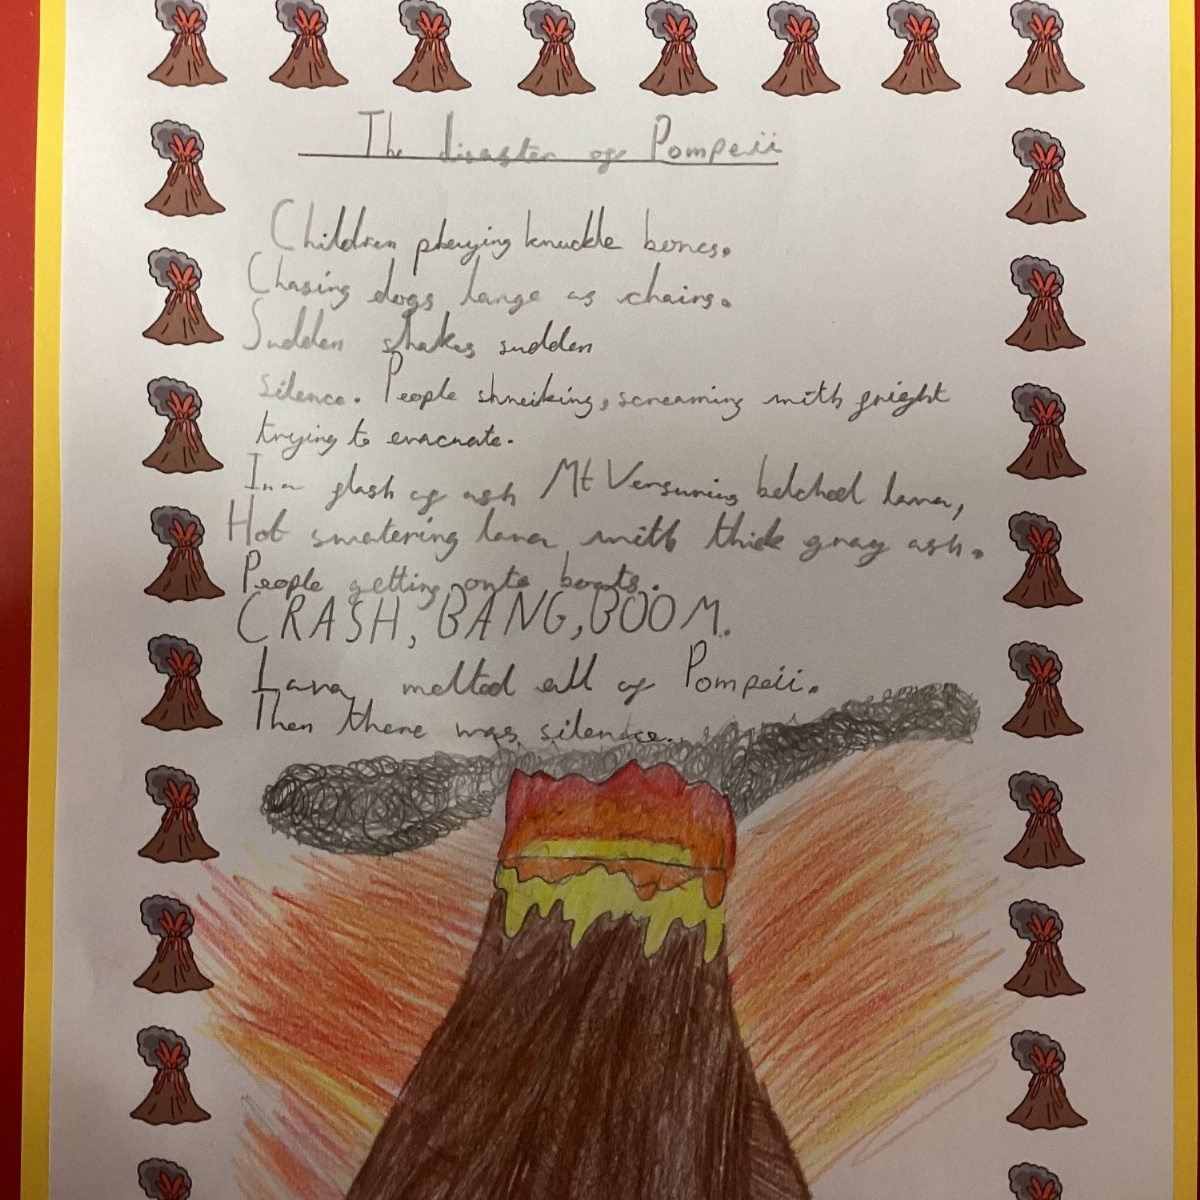 The disaster of Pompeii
Children playing knuckle bones.
Chasing dogs large as chairs.
Sudden shakes sudden
silence. People shreiking, screaming with fright
trying to evacuate.
In a flash of ash Mt Versuvius belched lava,
Hot smatering lava with thick gray ash.
People getting onto boats.
CRASH, BANG, BOOM.
Lava melted all of Pompeii.
Then there was silence.